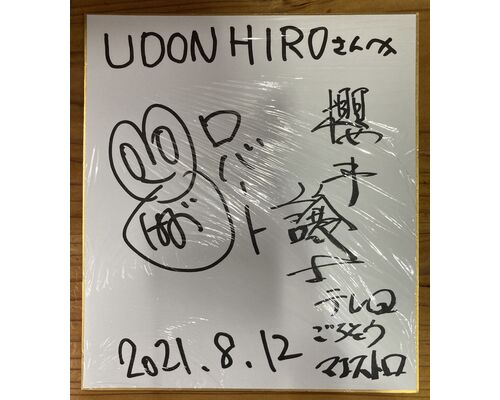 UDON HIROさんへ
ロバート
テレQ
ごちそう
マエストロ
2021.8.12